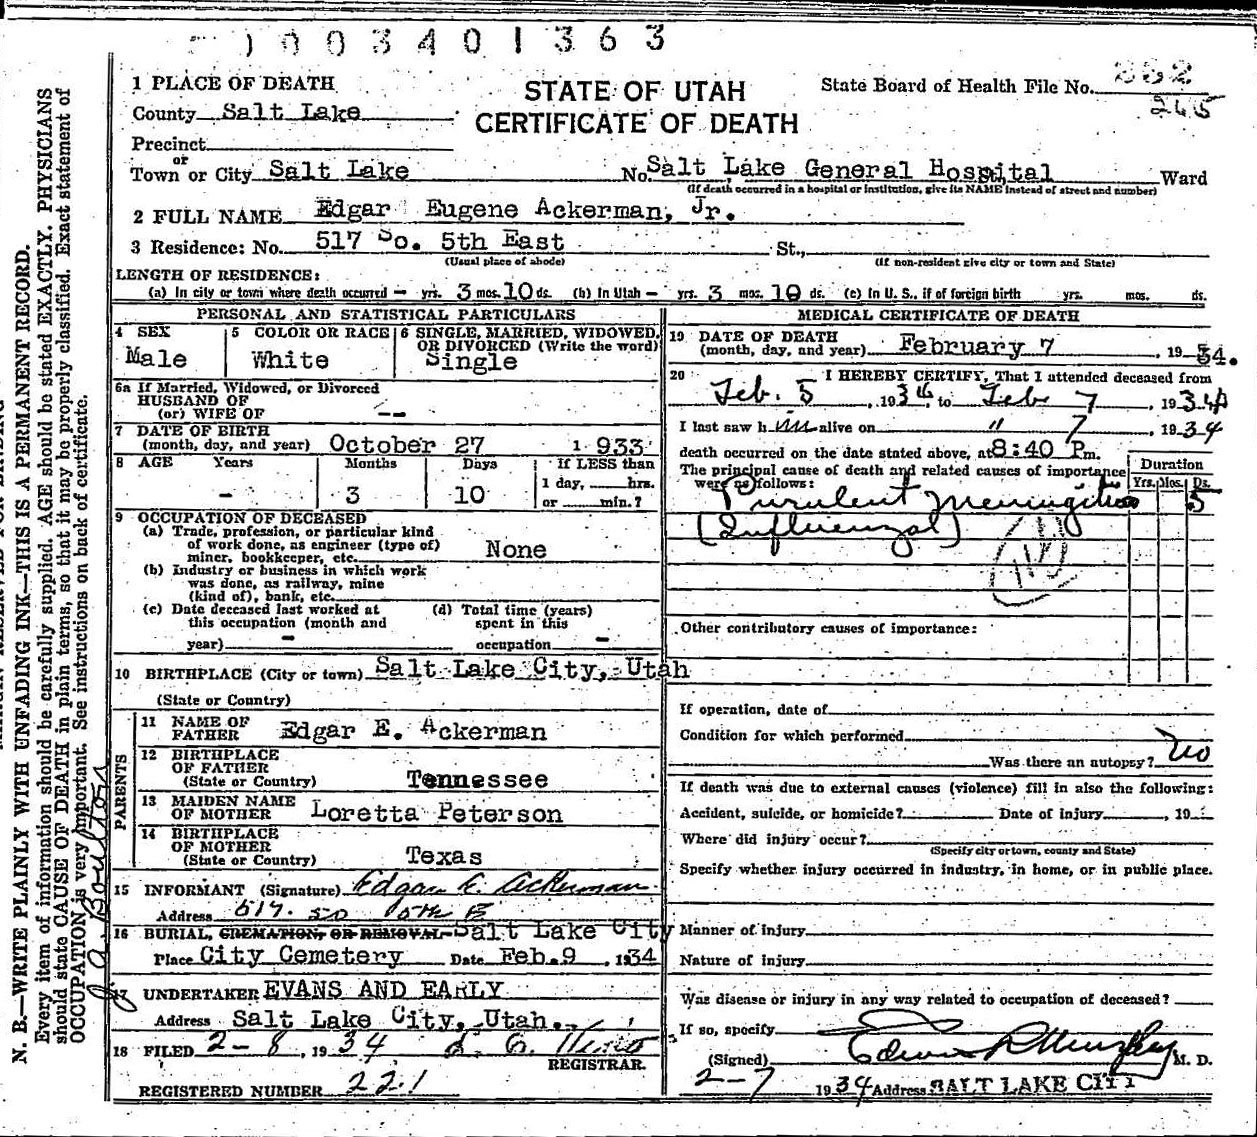 0003401363
1 PLACE OF DEATH
STATE OF UTAH
CERTIFICATE OF DEATH
State Board of Health File No.
265
County Salt Lake
Precinct
or
Town or City Salt Lake No. Salt Lake General Hospital Ward
(If death occurred in a hospital or institution, give its NAME instead of street and number)
2 FULL NAME Edgar Eugene Ackerman, Jr.
3 Residence: No. 517 So. 5th East St.,
(Usual place of abode) (If non-resident give city or town and State)
LENGTH OF RESIDENCE:
(a) In city or town where death occurred - yrs. 3 mos. 10 ds. (b) In Utah - yrs. 3 mos. 10 ds. (c) In U. S., if of foreign birth yrs. mos. ds.
PERSONAL AND STATISTICAL PARTICULARS
4 SEX
Male
5 COLOR OR RACE
White
6 SINGLE, MARRIED, WIDOWED, OR DIVORCED (Write the word)
Single
6a If Married, Widowed, or Divorced
HUSBAND OF
(or) WIFE OF --
7 DATE OF BIRTH
(month, day, and year) October 27 1933
8 AGE Years Months Days If LESS than
- 3 10 1 day, hrs.
or min.?
9 OCCUPATION OF DECEASED
(a) Trade, profession, or particular kind
of work done, as engineer (type of)
miner, bookkeeper, etc. None
(b) Industry or business in which work
was done, as railway, mine
(kind of), bank, etc.
(c) Date deceased last worked at
this occupation (month and
year) -
(d) Total time (years)
spent in this
occupation -
10 BIRTHPLACE (City or town) Salt Lake City, Utah
(State or Country)
PARENTS
11 NAME OF
FATHER Edgar E. Ackerman
12 BIRTHPLACE
OF FATHER
(State or Country) Tennessee
13 MAIDEN NAME
OF MOTHER Loretta Peterson
14 BIRTHPLACE
OF MOTHER
(State or Country) Texas
15 INFORMANT (Signature) Edgar E. Ackerman
Address 517 so 5th E
16 BURIAL, CREMATION, OR REMOVAL Salt Lake City
Place City Cemetery Date Feb. 9, 1934
17 UNDERTAKER EVANS AND EARLY
Address Salt Lake City, Utah.
18 FILED 2-8, 1934
REGISTRAR.
REGISTERED NUMBER 221
MEDICAL CERTIFICATE OF DEATH
19 DATE OF DEATH
(month, day, and year) February 7, 1934.
20 I HEREBY CERTIFY, That I attended deceased from
Feb. 5, 1934, to Feb 7, 1934
I last saw him alive on " 7, 1934
death occurred on the date stated above, at 8:40 P m.
The principal cause of death and related causes of importance
were as follows:
Duration
Yrs. Mos. Ds.
Purulent Meningitis 5
(Influenzal)
Other contributory causes of importance:
If operation, date of
Condition for which performed
Was there an autopsy? no
If death was due to external causes (violence) fill in also the following:
Accident, suicide, or homicide? Date of injury, 19
Where did injury occur?
(Specify city or town, county and State)
Specify whether injury occurred in industry, in home, or in public place.
Manner of injury
Nature of injury
Was disease or injury in any way related to occupation of deceased?
If so, specify
(Signed) M. D.
2-7 1934 Address SALT LAKE CITY
N. B.—WRITE PLAINLY WITH UNFADING INK—THIS IS A PERMANENT RECORD.
Every item of information should be carefully supplied. AGE should be stated EXACTLY. PHYSICIANS
should state CAUSE OF DEATH in plain terms, so that it may be properly classified. Exact statement of
OCCUPATION is very important. See instructions on back of certificate.